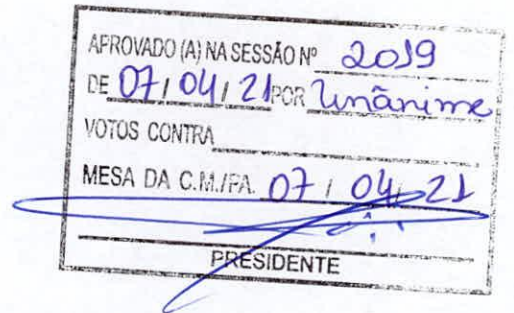 APROVADO (A) NA SESSÃO Nº 2019
DE 07 / 04 / 21 POR Unânime
VOTOS CONTRA
MESA DA C.M./P.A. 07 / 04 / 21
PRESIDENTE